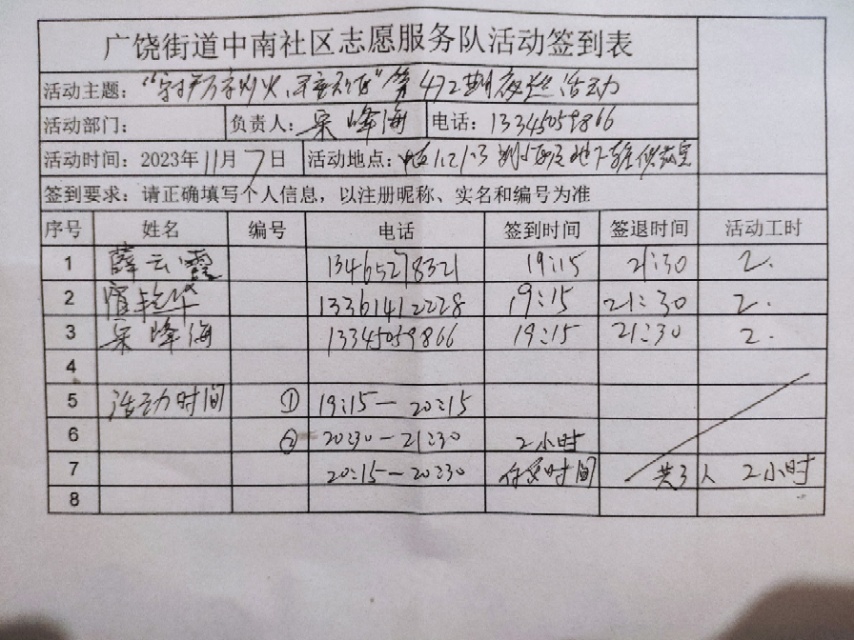 广饶街道中南社区志愿服务队活动签到表
活动主题：“守护万家灯火，平安社区”第472期夜巡活动
活动部门： 负责人：宋峰海 电话：13345059866
活动时间：2023年11月7日 活动地点：
签到要求：请正确填写个人信息，以注册昵称、实名和编号为准
序号 姓名 编号 电话 签到时间 签退时间 活动工时
1 薛云霞 13465278321 19:15 21:30 2.
2 艳华 13361412228 19:15 21:30 2.
3 宋峰海 13345059866 19:15 21:30 2.
4
5 活动时间 ① 19:15—20:15
6 ② 20:30—21:30 2小时
7 20:15—20:30 休息时间 共3人 2小时
8